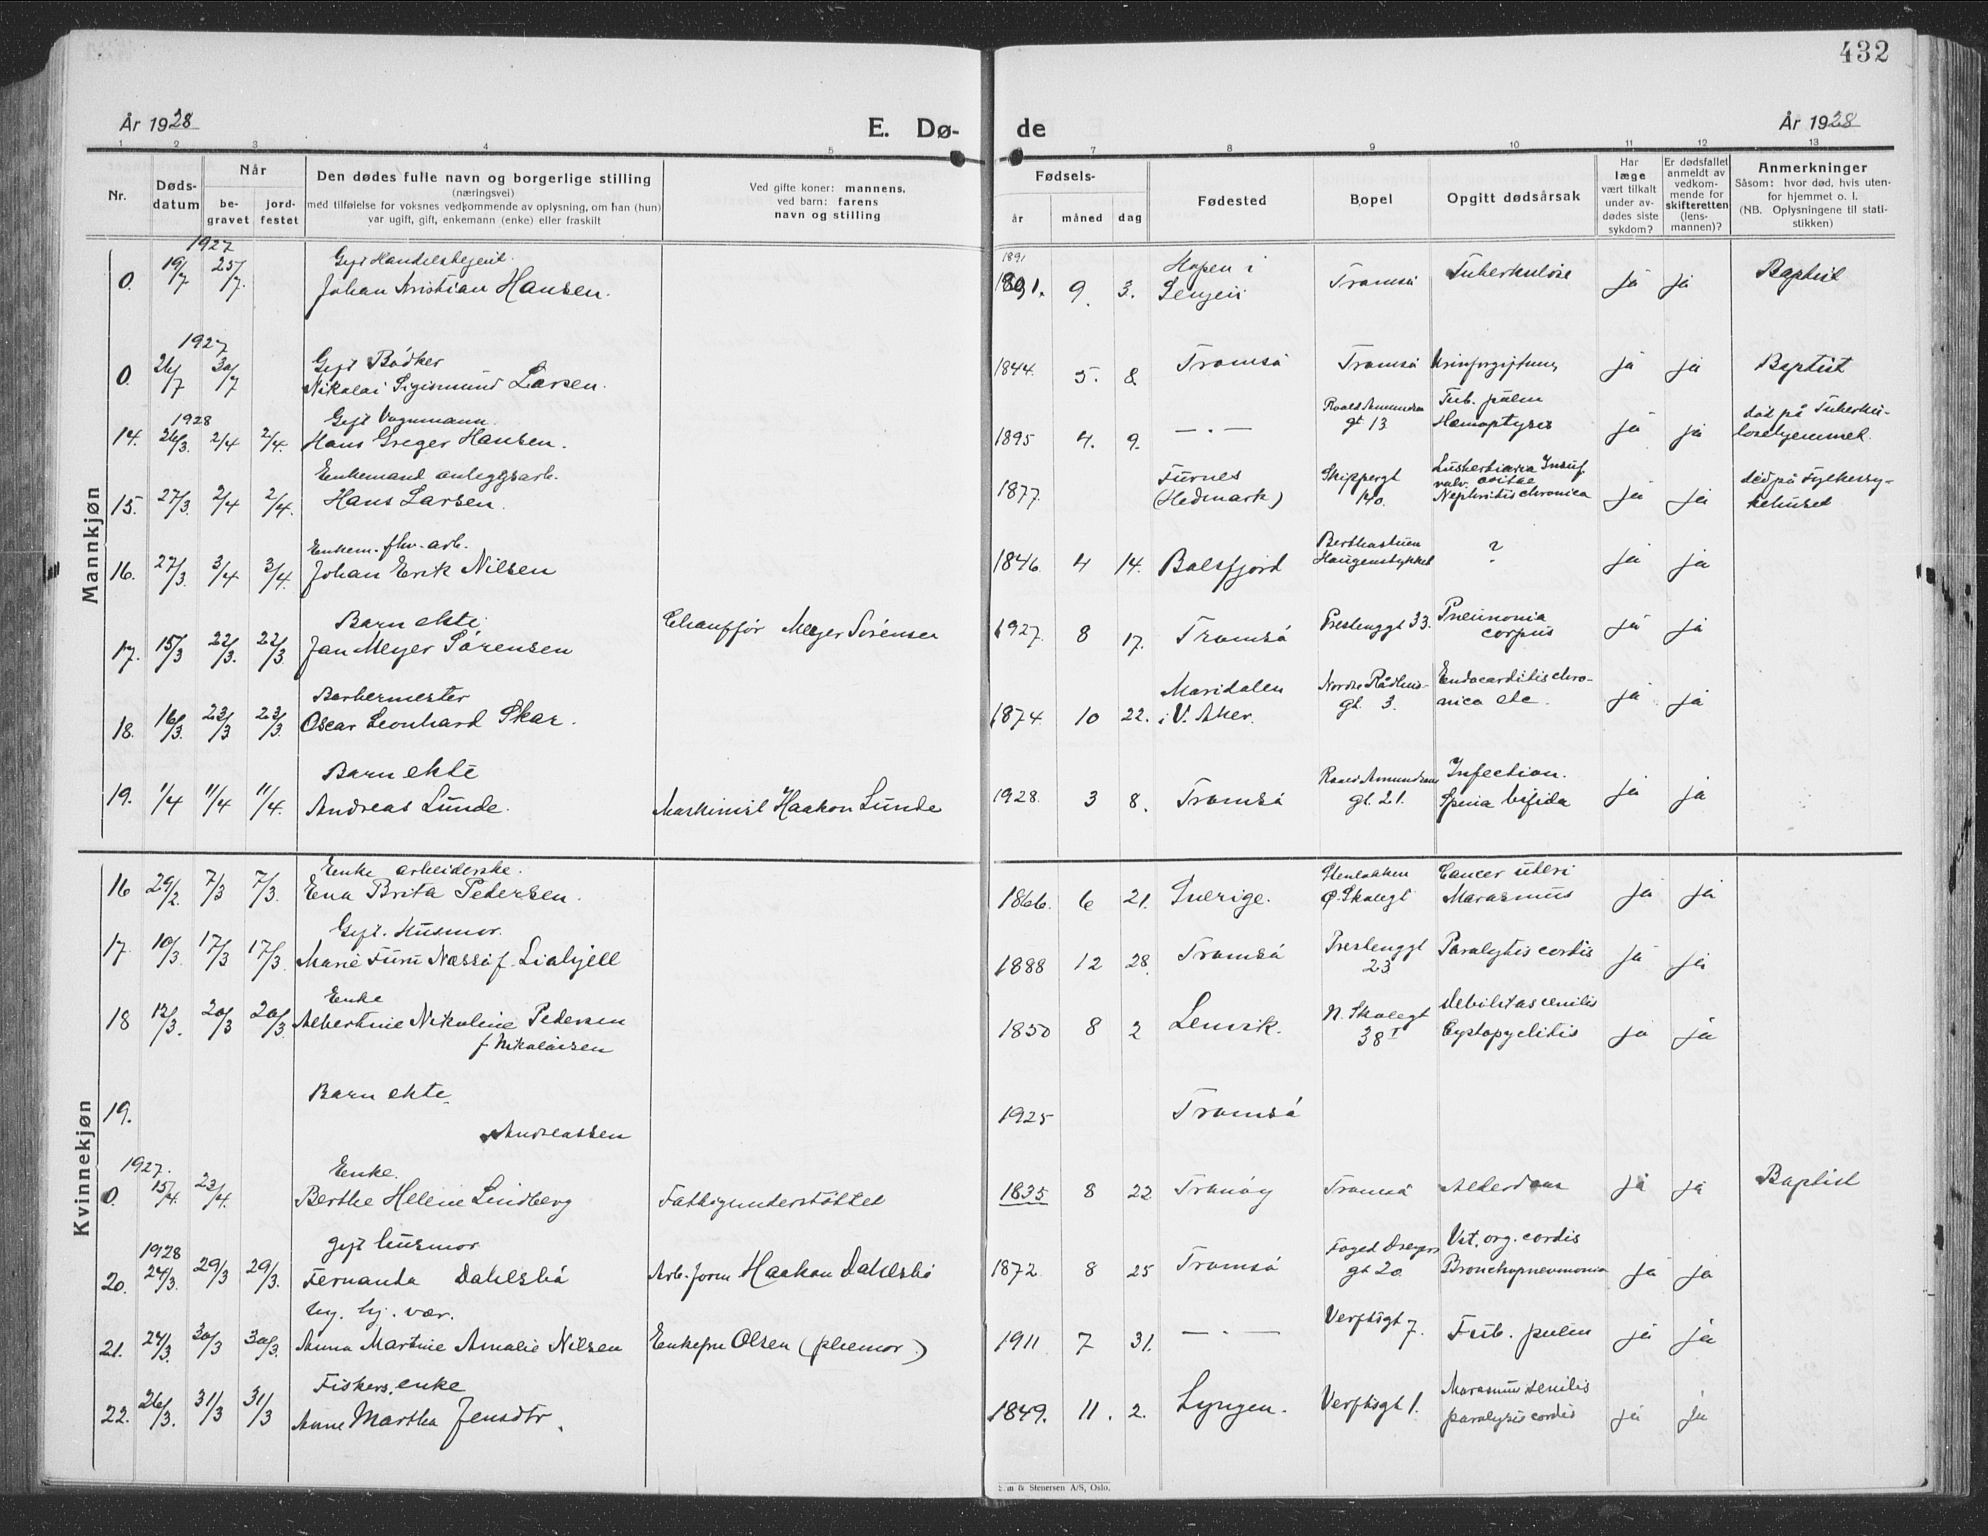 432
År 1928
E. Dø-
de
År 1928
1 2 3 4 5 7 8 9 10 11 12 13
Nr.
Døds-
datum
Når
be-
gravet
jord-
festet
Den dødes fulle navn og borgerlige stilling
(næringsvei)
med tilføielse for voksnes vedkommende av oplysning, om han (hun)
var ugift, gift, enkemann (enke) eller fraskilt
Ved gifte koner: mannens,
ved barn: farens
navn og stilling
Fødsels-
år måned dag
Fødested
Bopel
Opgitt dødsårsak
Har
læge
vært tilkalt
under av-
dødes siste
sykdom?
Er dødsfallet
anmeldt av
vedkom-
mende for
skifteretten
(lens-
mannen)?
Anmerkninger
Såsom: hvor død, hvis uten-
for hjemmet o. l.
(NB. Oplysningene til stati-
stikken)
Mannkjøn
1927
Gift Handelsbetjent. 1891
0. 19/7 25/7. Johan Kristian Hansen. 1891. 9. 3. Hopen i Senjen Tromsø Tuberkulose ja ja Baptist
1927
Gift Bødker
0. 26/7 30/7 Nikolai Sigismund Larsen. 1844. 5. 8 Tromsø Tromsø Urinforgiftning ja ja Baptist
1928
Gift Vognmann.
14. 26/3. 2/4 2/4. Hans Greger Hansen. 1895 4. 9. — . — Roald Amundsen gt 13 Tub. pulm Hæmoptyses ja ja død på Tuberku-
losehjemmet.
Enkemand anleggsarb.
15. 27/3. 2/4 2/4. Hans Larsen. 1877. Furnes (Hedmark) Skippergt 140. Insuf valv. Nephritis chronica ja ja død på Fylkessy-
kehuset
Enkem. fhv. arb.
16. 27/3. 3/4 3/4. Johan Erik Nilsen 1846. 4 14. Balsfjord Haugenstykket ? ja ja
Barn ekte.
17. 15/3 22/3. 22/3 Jan Meyer Sørensen Chauffør Meyer Sørensen 1927. 8 17. Tromsø Prestenggt 33. Pneumonia corpus ja ja
Barbermester
18. 16/3. 23/3 23/3. Oscar Leonhard Skar. 1874. 10 22. Maridalen i V. Aker. Nordre Rådhus-
gt. 3. Endocarditis chro-
nica etc. ja ja
Barn ekte
19. 1/4 11/4 11/4. Andreas Lunde. Maskinist Haakon Lunde 1928. 3 8. Tromsø Roald Amundsens gt. 21. Infection. Spina bifida ja ja
Kvinnekjøn
Enke arbeiderske.
16 29/2. 7/3 7/3. Eva Brita Pedersen. 1866. 6 21. Sverige. Ø. Skolegt Cancer uteri Marasmus ja ja
Gift. Husmor.
17. 10/3. 17/3 17/3. Marie Furu Næss f. Liabjell 1888 12 28. Tromsø Prestenggt 23 Paralytis cordis ja ja
Enke
18 12/3. 20/3 20/3. Albertine Nikoline Pedersen
f Nikolaisen 1850 8 2 Lenvik. N. Skolegt 38 I Debilitas senilis Cystopyelitis ja ja
Barn ekte.
19. Andreassen 1925 Tromsø
1927.
Enke.
0. 15/4. 23/4. Berthe Helene Lindberg Fattigunderstøttet 1835 8 22 Tranøy Tromsø Alderdom ja ja Baptist
1928
gift husmor
20. 24/3. 29/3 29/3. Fernanda Dahlsbø Arb. form Haakon Dahlsbø 1872. 8 25 Tromsø Foged Dreyers gt 20. Vit. org. cordis Bronchopneumonia ja ja
ug. hj. vær.
21. 24/3. 30/3 30/3. Anna Martine Amalie Nilsen Enkefru Olsen (pleiemor.) 1911 7 31. — . — Verftsgt 7. Tub. pulm ja ja
Fiskers. enke
22. 26/3. 31/3 31/3 Anne Martha Jensdtr. 1849. 11. 2. Lyngen. Verftsgt 1. Marasmus senilis paralysis cordis ja ja
& Stenersen A/S, Oslo.